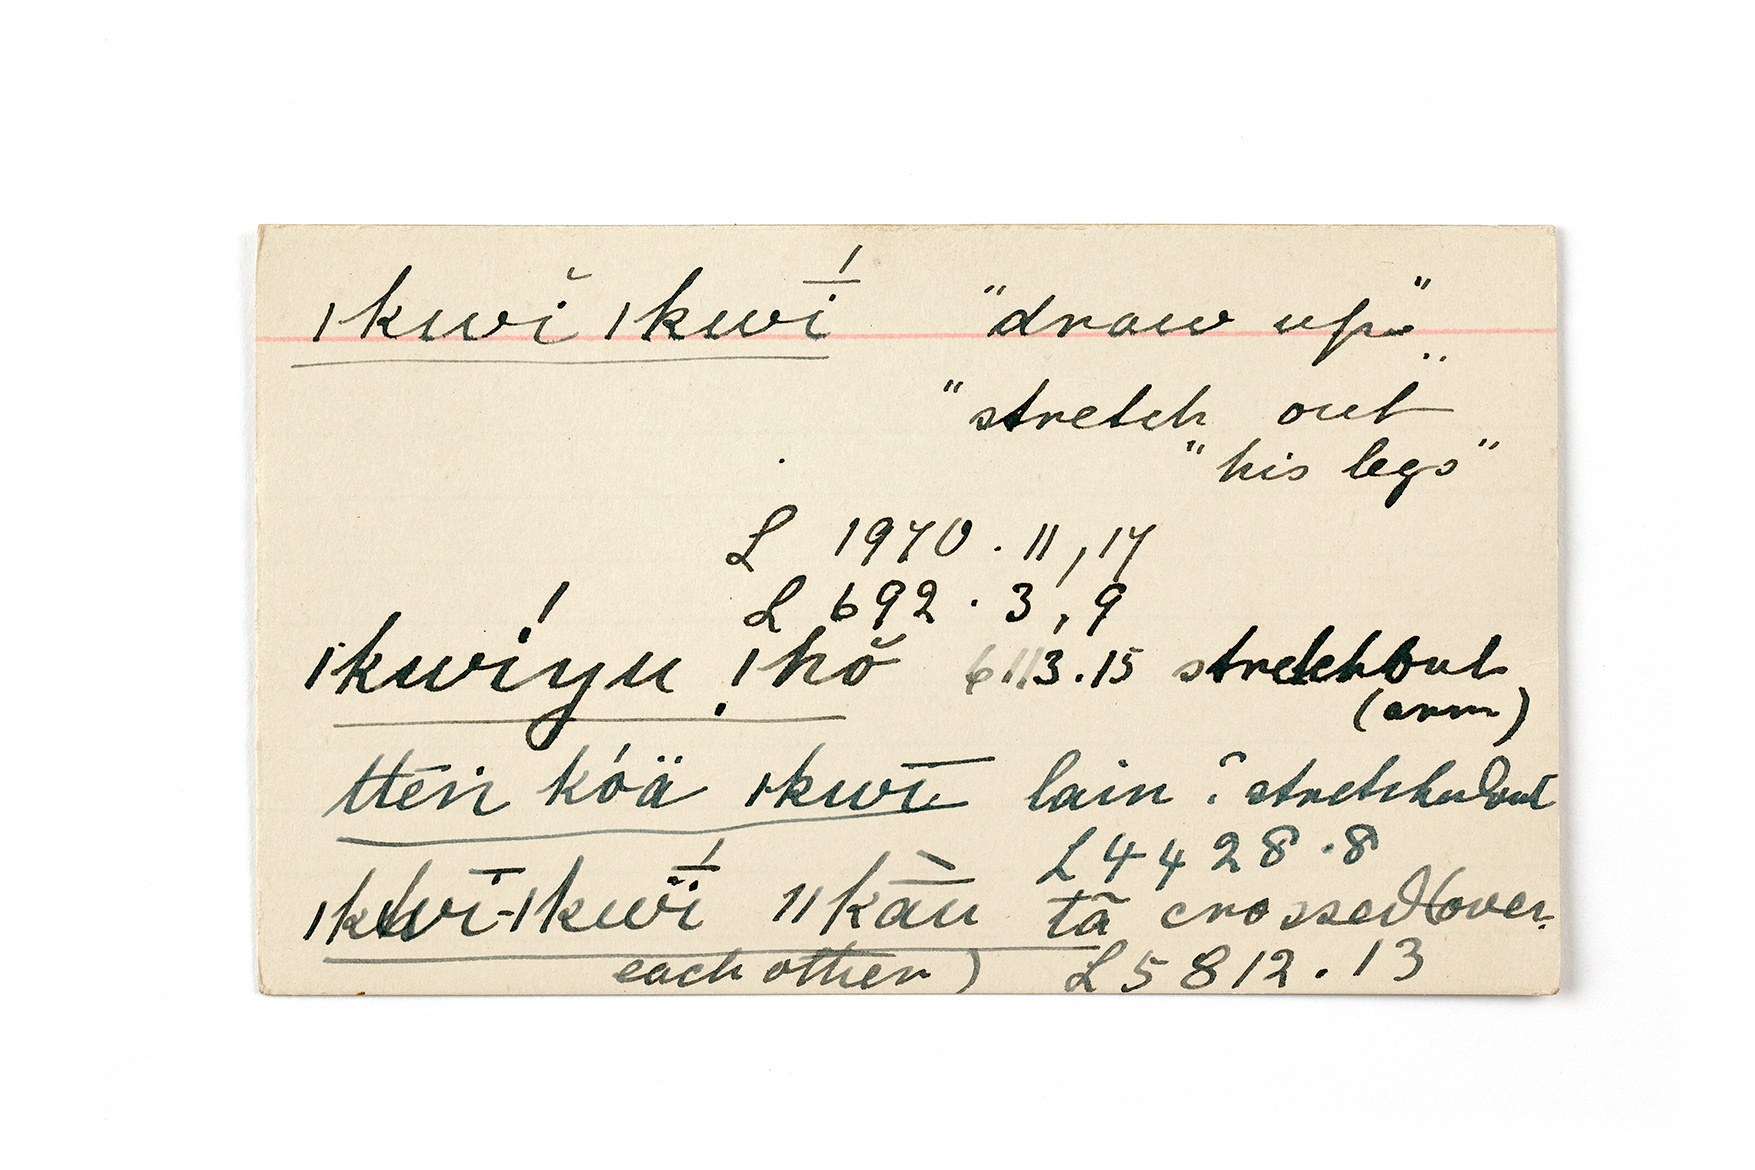 ǀkwĭ ǀkwī́ "draw up"
"stretch out"
"his legs"
L 1970 . 11, 17
L 692 . 3, 9
ǀkwíyu ǃhŏ 6113.15 stretch out
(arm)
ttēn kóä ǀkwī lain ? stretched out
L 4428.8
ǀkwī-ǀkwī́ ǁkā̀u tā crossed (over
each other) L 5812.13